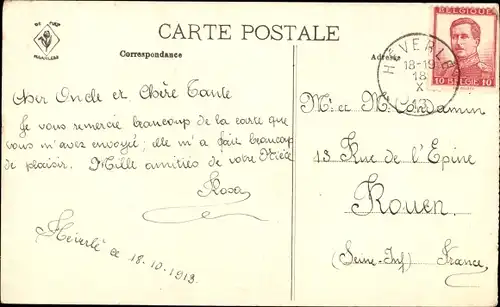 DE TULP
HAARLEM
CARTE POSTALE
Correspondance
Adresse
BELGIQUE
10 BELGIË 10
HEVERLE
18-19
18
X
13
Cher Oncle et Chère Tante
Je vous remercie beaucoup de la carte que
vous m'avez envoyée; elle m'a fait beaucoup
de plaisir. Mille amitiés de votre Nièce
Rosa
Héverlé ce 18-10-1913.
Mr et Me Condamin
13 Rue de l'Epine
Rouen.
(Seine-Inf) France,